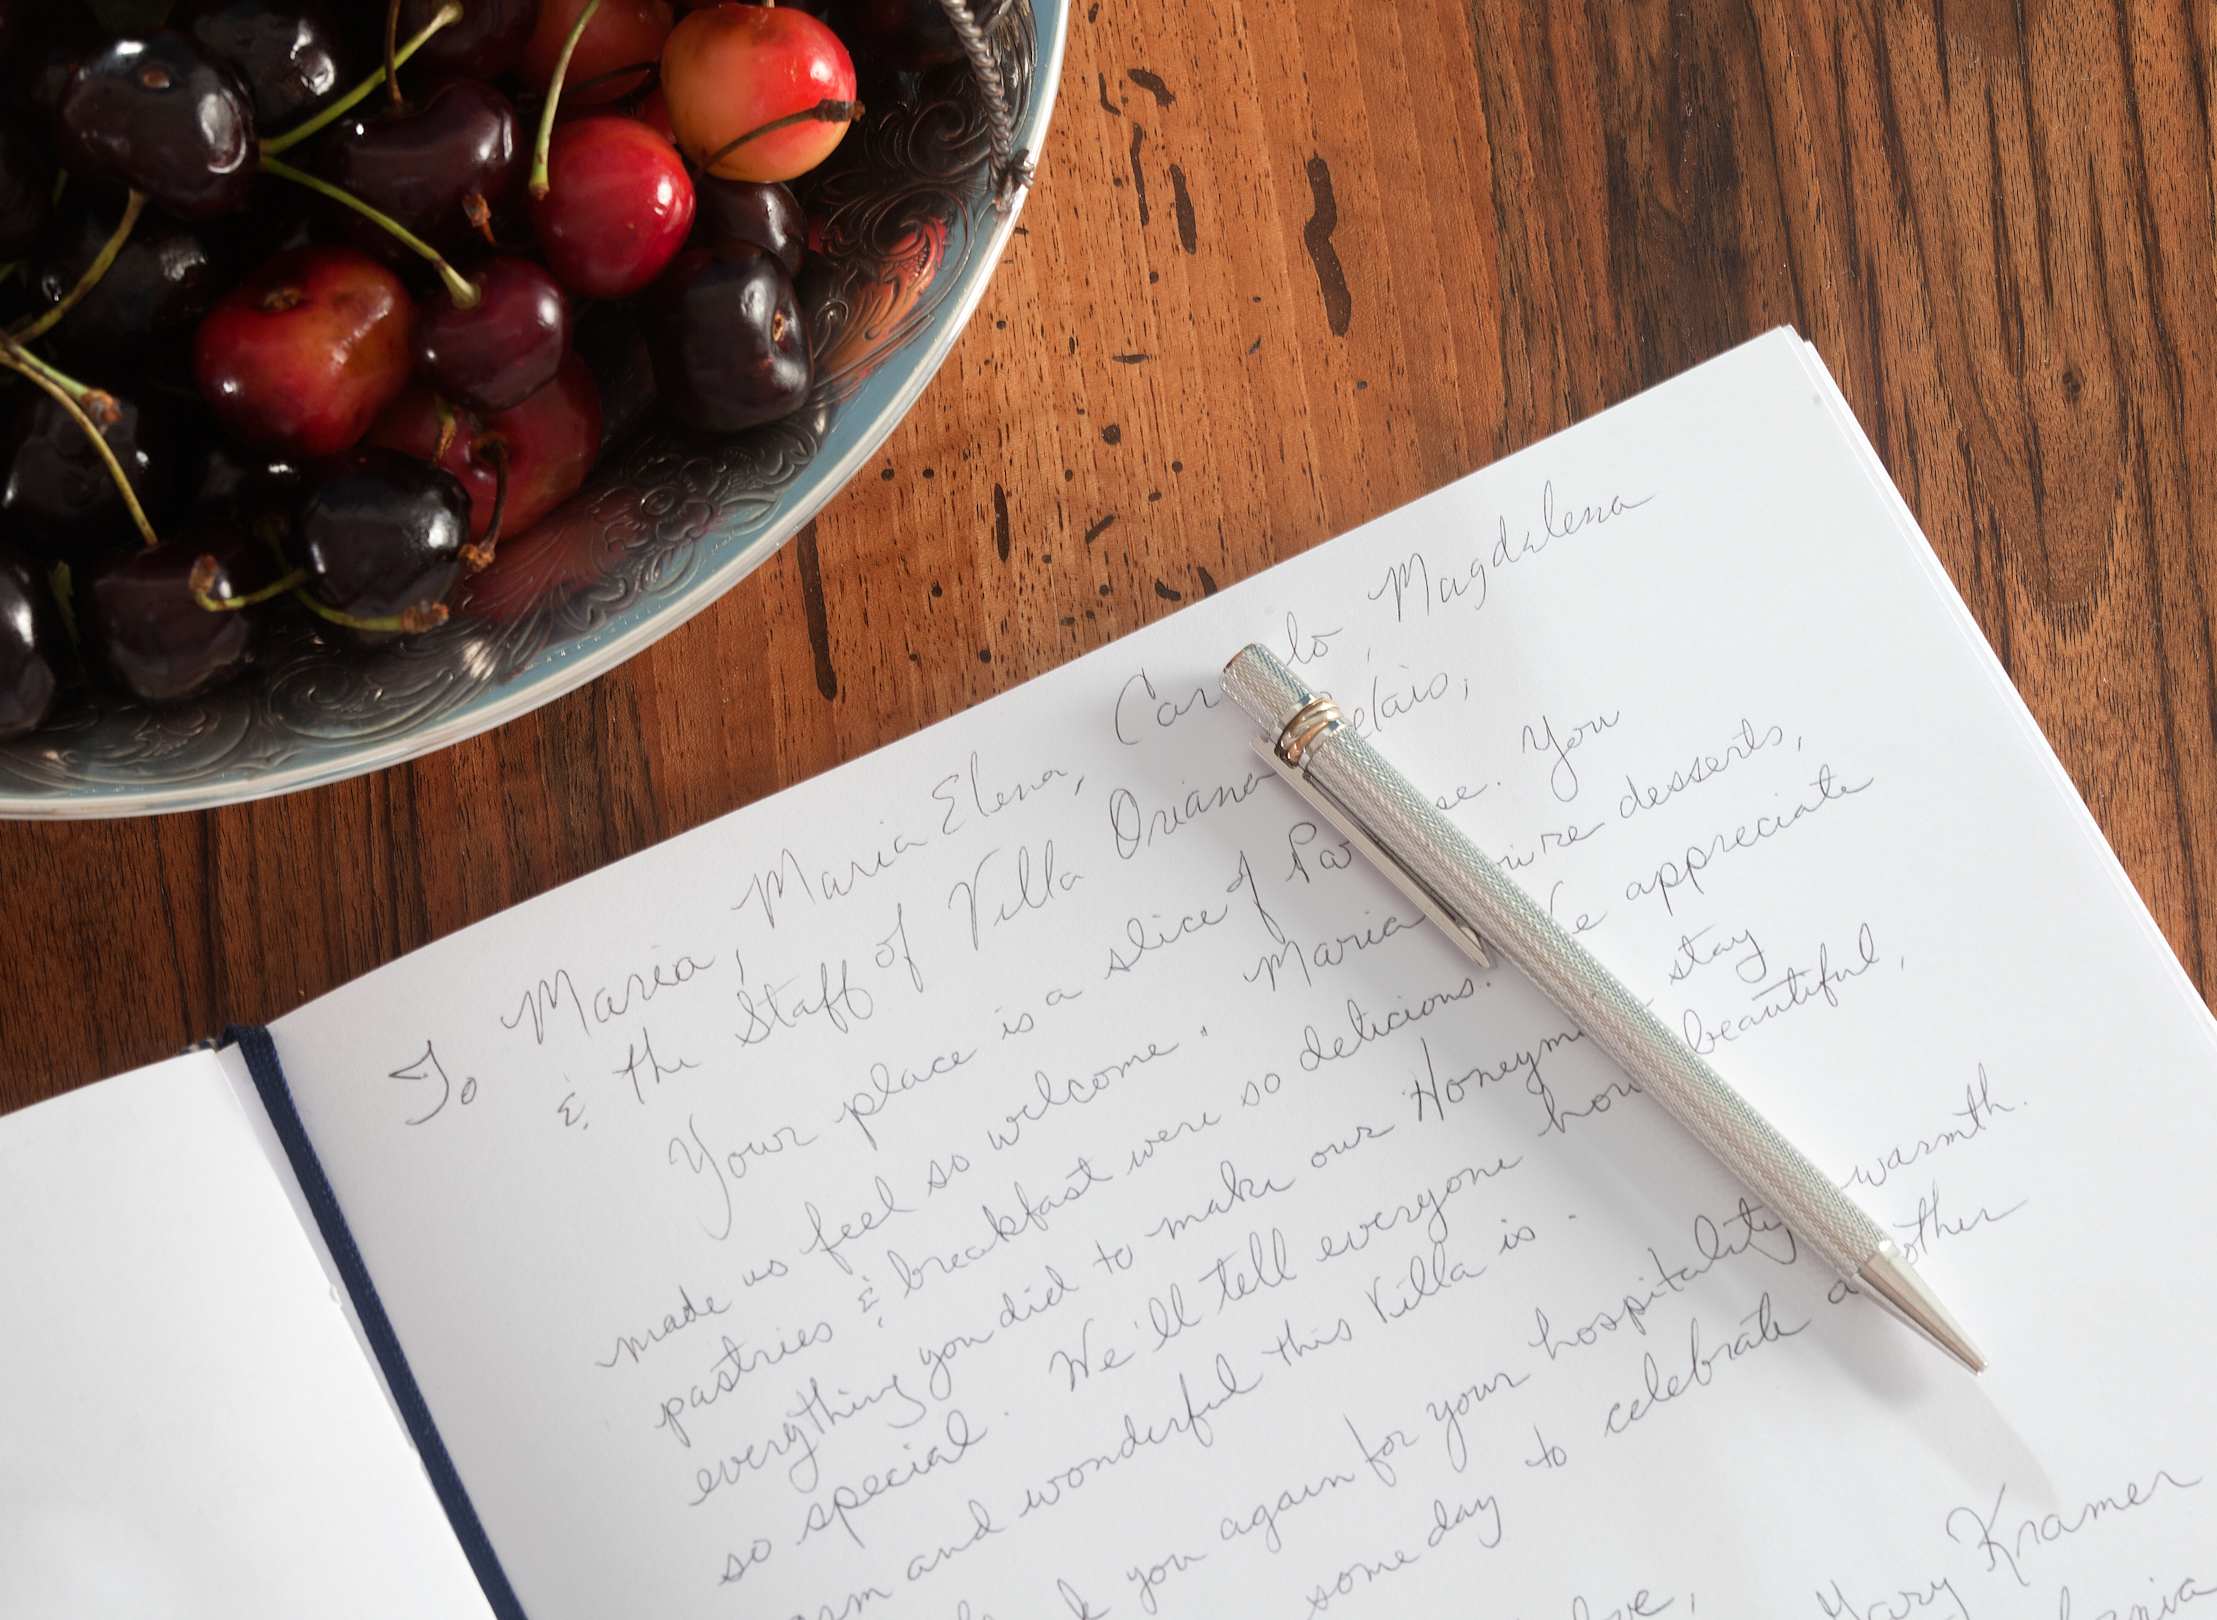 To Maria, Maria Elena, Carlo, Magdalena
& the Staff of Villa Oriana Relais,
Your place is a slice of Paradise. You
made us feel so welcome. Maria desserts,
pastries & breakfast were so delicious. We appreciate
everything you did to make our Honeymoon stay
so special. We'll tell everyone how beautiful,
warm and wonderful this Villa is.
Thank you again for your hospitality warmth.
someday to celebrate another
Love,
Mary Kramer